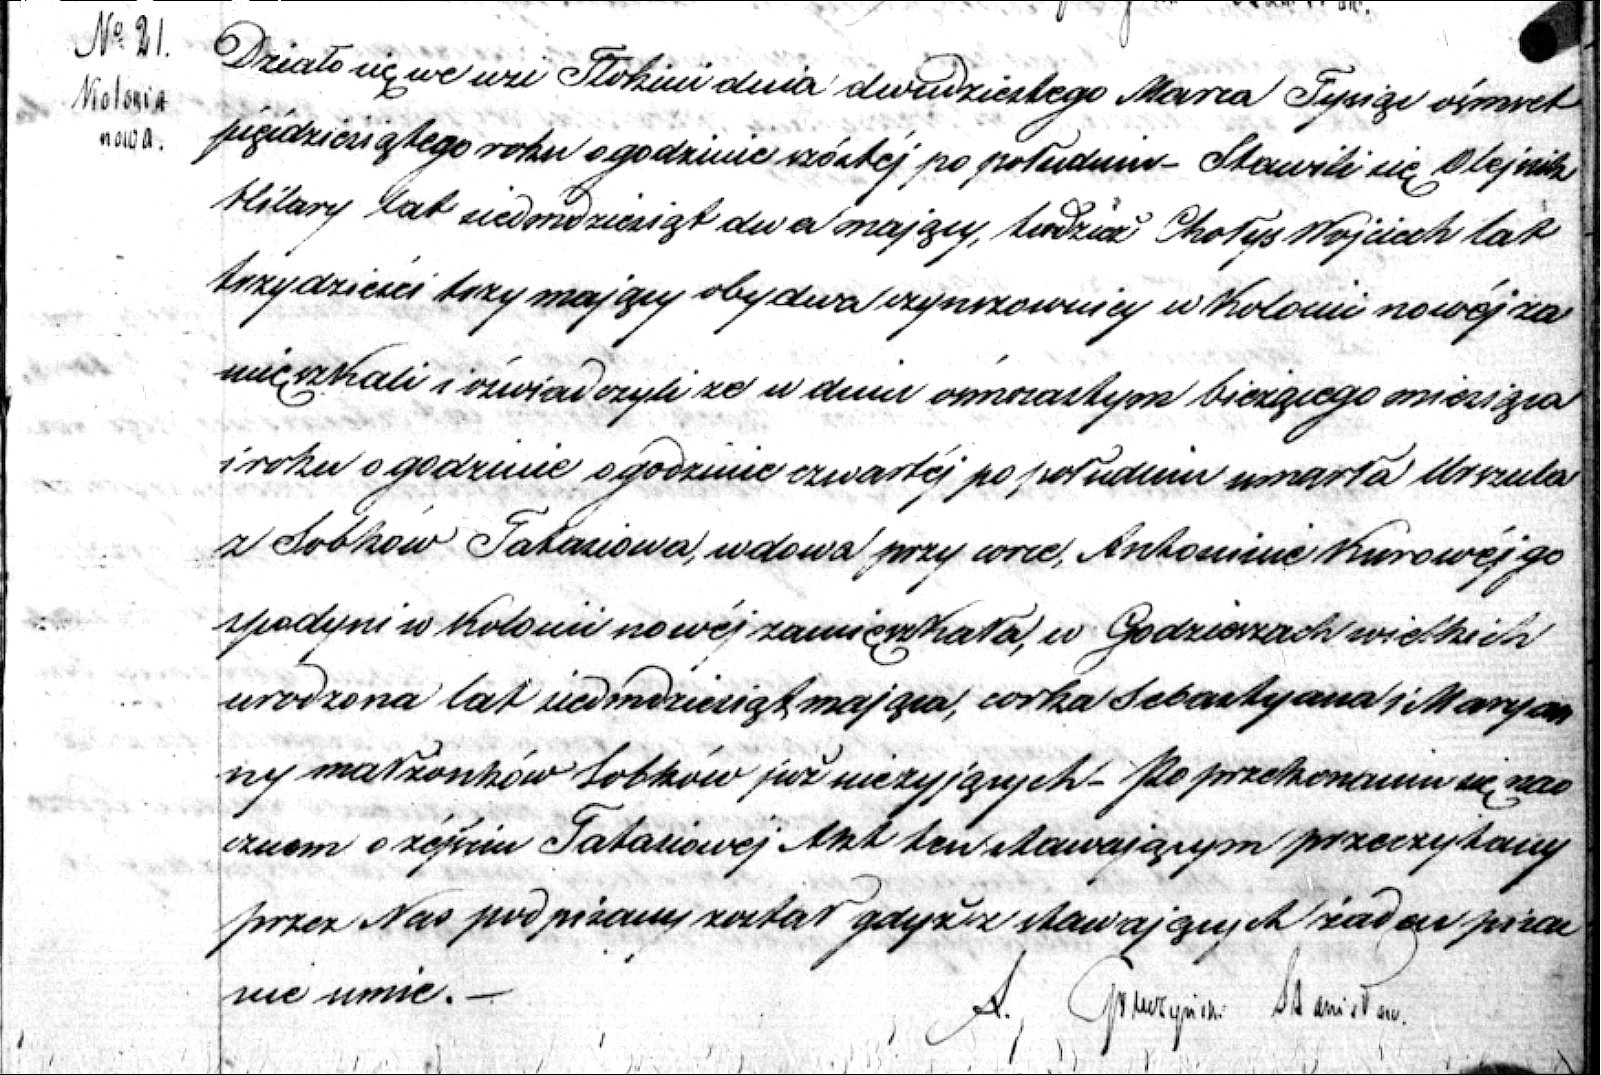 № 21.
Kolonia
nowa.
Działo się we wsi Tłokini dnia dwudziestego Marca Tysiąc ośmset
pięćdziesiątego roku o godzinie szóstéj po południu – Stawili się Olejnik
Hilary lat siedmdziesiąt dwa mający, tudzież Chołys Wojciech lat
trzydzieści trzy mający obydwa czynszownicy w Kolonii nowéj za
mięszkali i oświadczyli ze w dniu ośmnastym bieżącego miesiąca
i roku o godzinie o godzinie czwartéj po południu umarła Urszula
z Sobków Tatasiowa, wdowa przy corce, Antoninie Kurowéj go
spodyni w Kolonii nowéj zamięszkała, w Godzieszach wielkich
urodzona lat siedmdziesiąt mająca, corka Sebastyana i Maryan
ny małżonków Sobków już nieżyjących – Po przekonaniu się nao
cznem o zejściu Tatasiowej Akt ten stawającym przeczytany
przez Nas podpisany został gdyż z stawających żaden pisać
nie umie. –